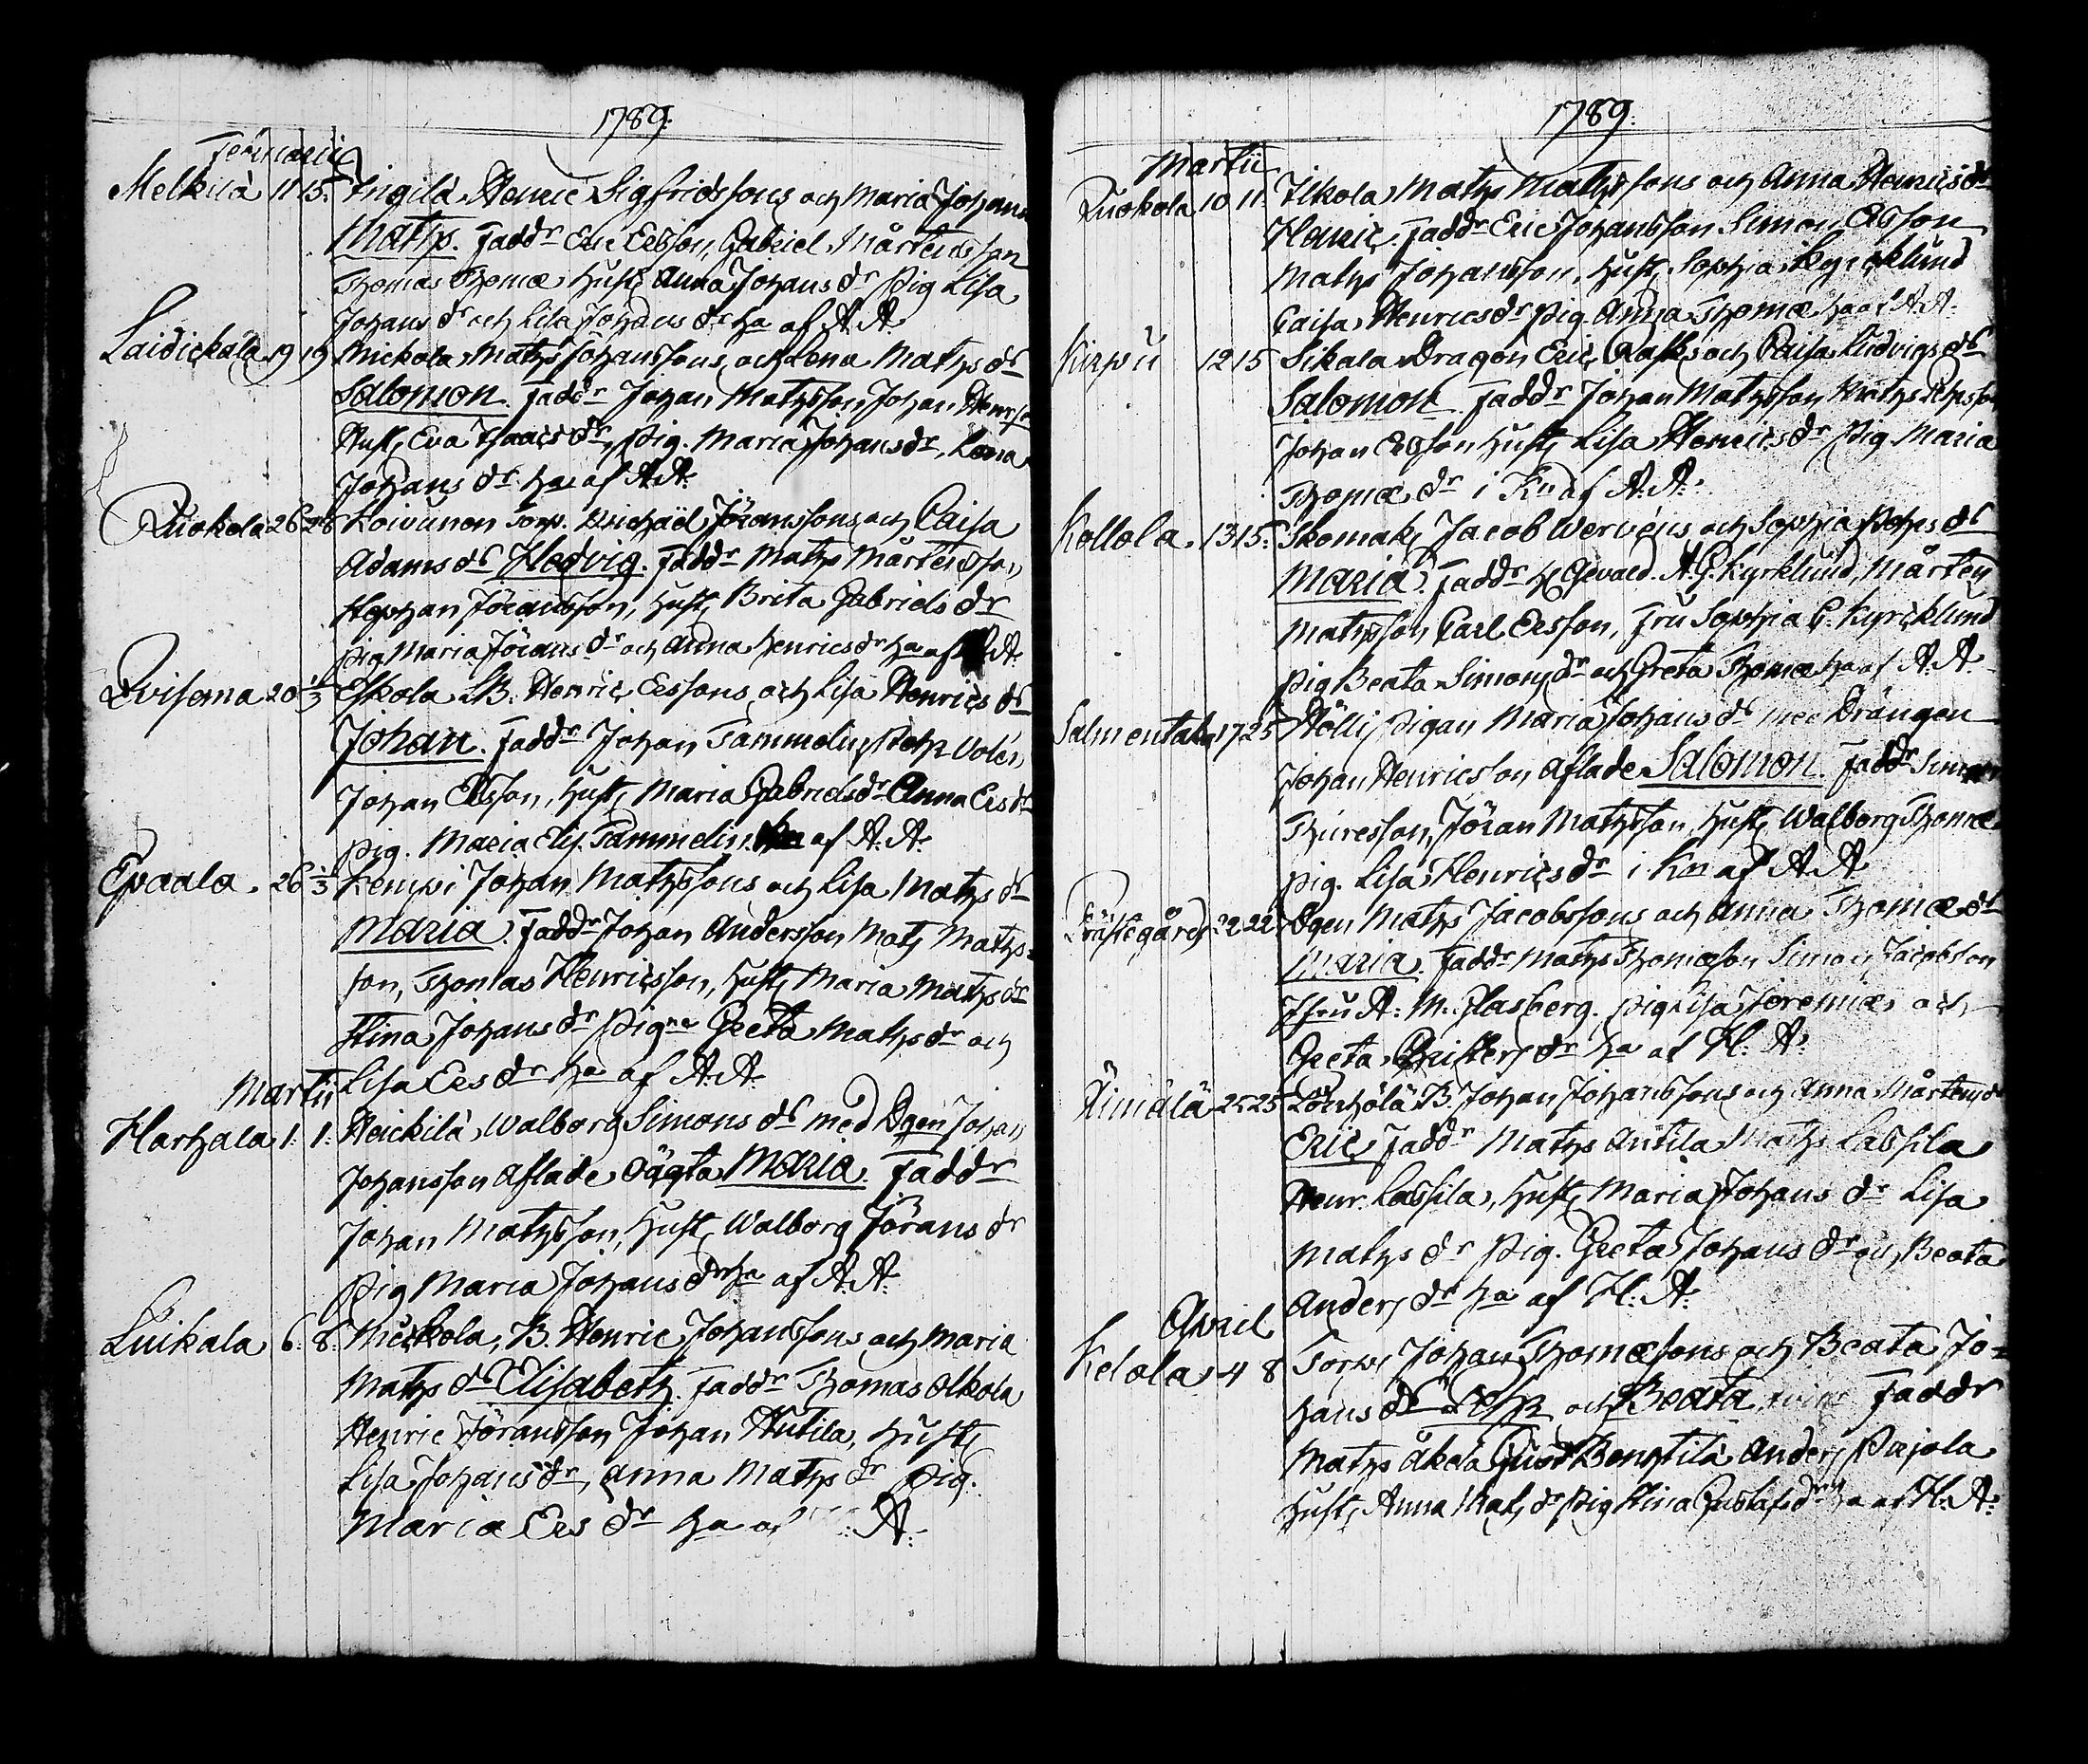 1789.
Februarii
Melkilä 11 15. Ingilä Henric Sigfridssons och Maria Johans
Maths. Faddr Eric Ersson, Gabriel Mårtensson
Thomas Thomæ Hust, Anna Johans dr Pig Lisa
Johans dr och Lisa Johans dr ha af A. A.
Laidickala 19 19 Mickola Maths Johanssons och Lena Maths dr
Salomon. Faddr Johan Mathsson Johan Henrss
Hust, Eva Isaacs dr, Pig. Maria Johansdr, Lena
Johans dr ha af A. A.
Ruokola 26 28 Koivunen Torp. Michael Jöranssons och Caisa
Adams dr Hedvig. Faddr Maths Mårtensson
Stephan Jöransson, Hust, Brita Gabriels dr
Pig Maria Jörans dr och Anna Henricsdr ha af A.
Qvisema 20 1/3 Eskola SB. Henric Erssons och Lisa Henrics dr
Johan. Faddr Johan Tammelin, Petr Volén
Johan Ersson, Hust, Maria Gabrielsdr Anna Ersdr
Pig. Maria Elis. Tammelin. af A. A.
Epaala. 26 1/3 Kempi Johan Mathssons och Lisa Maths dr
Maria. Faddr Johan Andersson Mats Maths-
son, Thomas Henricsson, Hust, Maria Maths dr
Stina Johans dr Pigne Greta Maths dr och
Lisa Ers dr ha af A. A.
Martii
Harhala 1. 1. Heickilä Walborg Simons dr med Dgen Johan
Johansson aflade oägta Maria. Faddr
Johan Mathsson, Hust, Walborg Jörans dr
Pig Maria Johans dr ha af A. A.
Luikala 6. 8. Mickola, B. Henric Johanssons och Maria
Maths dr Elisabeth. Faddr Thomas Olkola
Henric Jöransson Johan Hutila, Hust,
Lisa Johansdr, Anna Maths dr Pig.
Maria Ers dr ha af A.
1789.
Martii
Ruokola 10 11. Ilkola Maths Mathssons och Anna Henricsdr
Henric. Faddr Eric Johansson Simon Ersson
Maths Johansson, Hust, Sophia Kyrcklund
Caisa Henricsdr Pig. Anna Thomæ ha af A. A.
Kirpu 12 15 Sikala Dragon Eric Rasks och Caisa Ludvigs dr
Salomon. Faddr Johan Mathsson Maths Pehrsson
Johan Ersson Hust, Lisa Henricsdr Pig Maria
Thomæ dr i Kn af A. A.
Kollola. 13 15. Skomak, Jacob Wervéns och Sophia Pehrs dr
Maria. Faddr H A. G. Kyrklund, Mårten
Mathsson Carl Ersson, Fru Sophia C. Kyrcklund
Pig Beata Simonsdr och Greta Thomæ ha af A. A.
Salmentaka 17 25 Hölli Pigan Maria Johans dr med Drängen
Johan Henricsson aflade Salomon. Faddr Simon
Thuresson, Jöran Mathsson, Hust, Walborg Thomæ
Pig. Lisa Henrics dr i Kn af A. A.
Prästegård 22 22. Dgen Maths Jacobssons och Anna Thomæ dr
Maria. Faddr Maths Thomæson Simon Jacobsson
Jfru A. M. Flasberg. Pig Lisa Jeremiæ och
Greta Christers dr ha af H. A.
Äimälä 25 25 B. Johan Johanssons och Anna Mårtensdr
Eric. Faddr Maths Antila Maths Lassila
Henr. Lassila, Hust, Maria Johans dr Lisa
Maths dr Pig. Greta Johans dr och Beata
Anders dr ha af H. A.
April
Ketola 4 8 Torp. Johan Thomæsons och Beata Jo-
hans dr Pehr och Beata Faddr
Maths Äkelä Gust Bengtilä Anders Pajola
Hust, Anna Mats dr Pig Stina Gustafs dr ha af H. A.